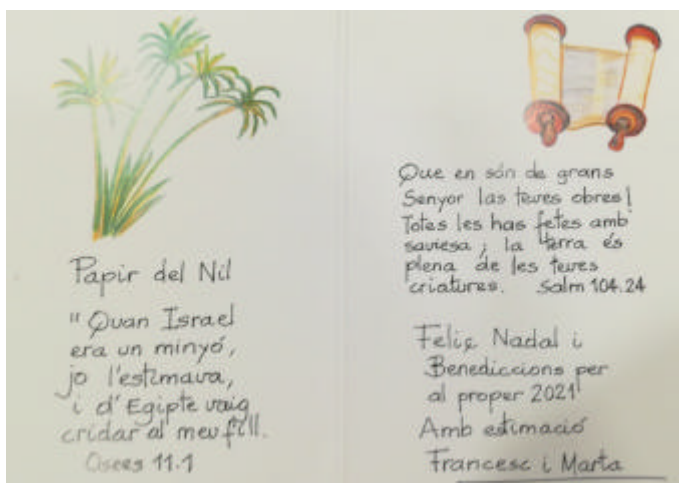 Papir del Nil
"Quan Israel
era un minyó,
jo l'estimava,
i d'Egipte vaig
cridar al meu fill.
Osees 11.1
Que en són de grans
Senyor las teves obres!
Totes les has fetes amb
saviesa; la terra és
plena de les teves
criatures. Salm 104.24
Feliç Nadal i
Benediccions per
al proper 2021
Amb estimació
Francesc i Marta